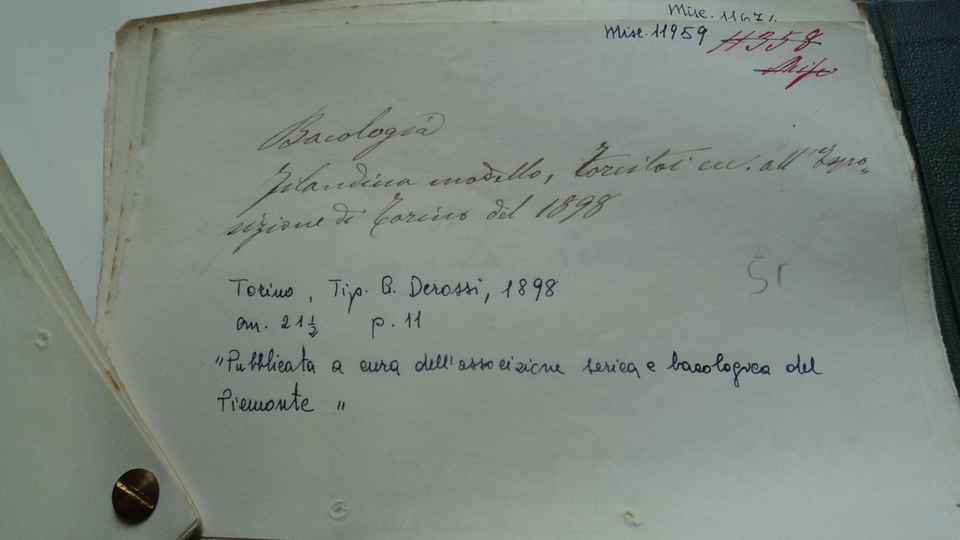 Misc. 1167
Misc. 11959 11358
Misc
Bacologia
Filandina modello, Torcitoi ecc. all'Espo„
sizione di Torino del 1898
Torino, Tip. G. Derossi, 1898
cm. 21 1/2 p. 11
51
„Pubblicata a cura dell'associzione serica e bacologica del
Piemonte „